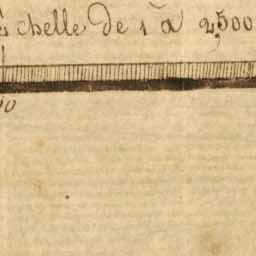 Echelle de 1 à 2,500
00